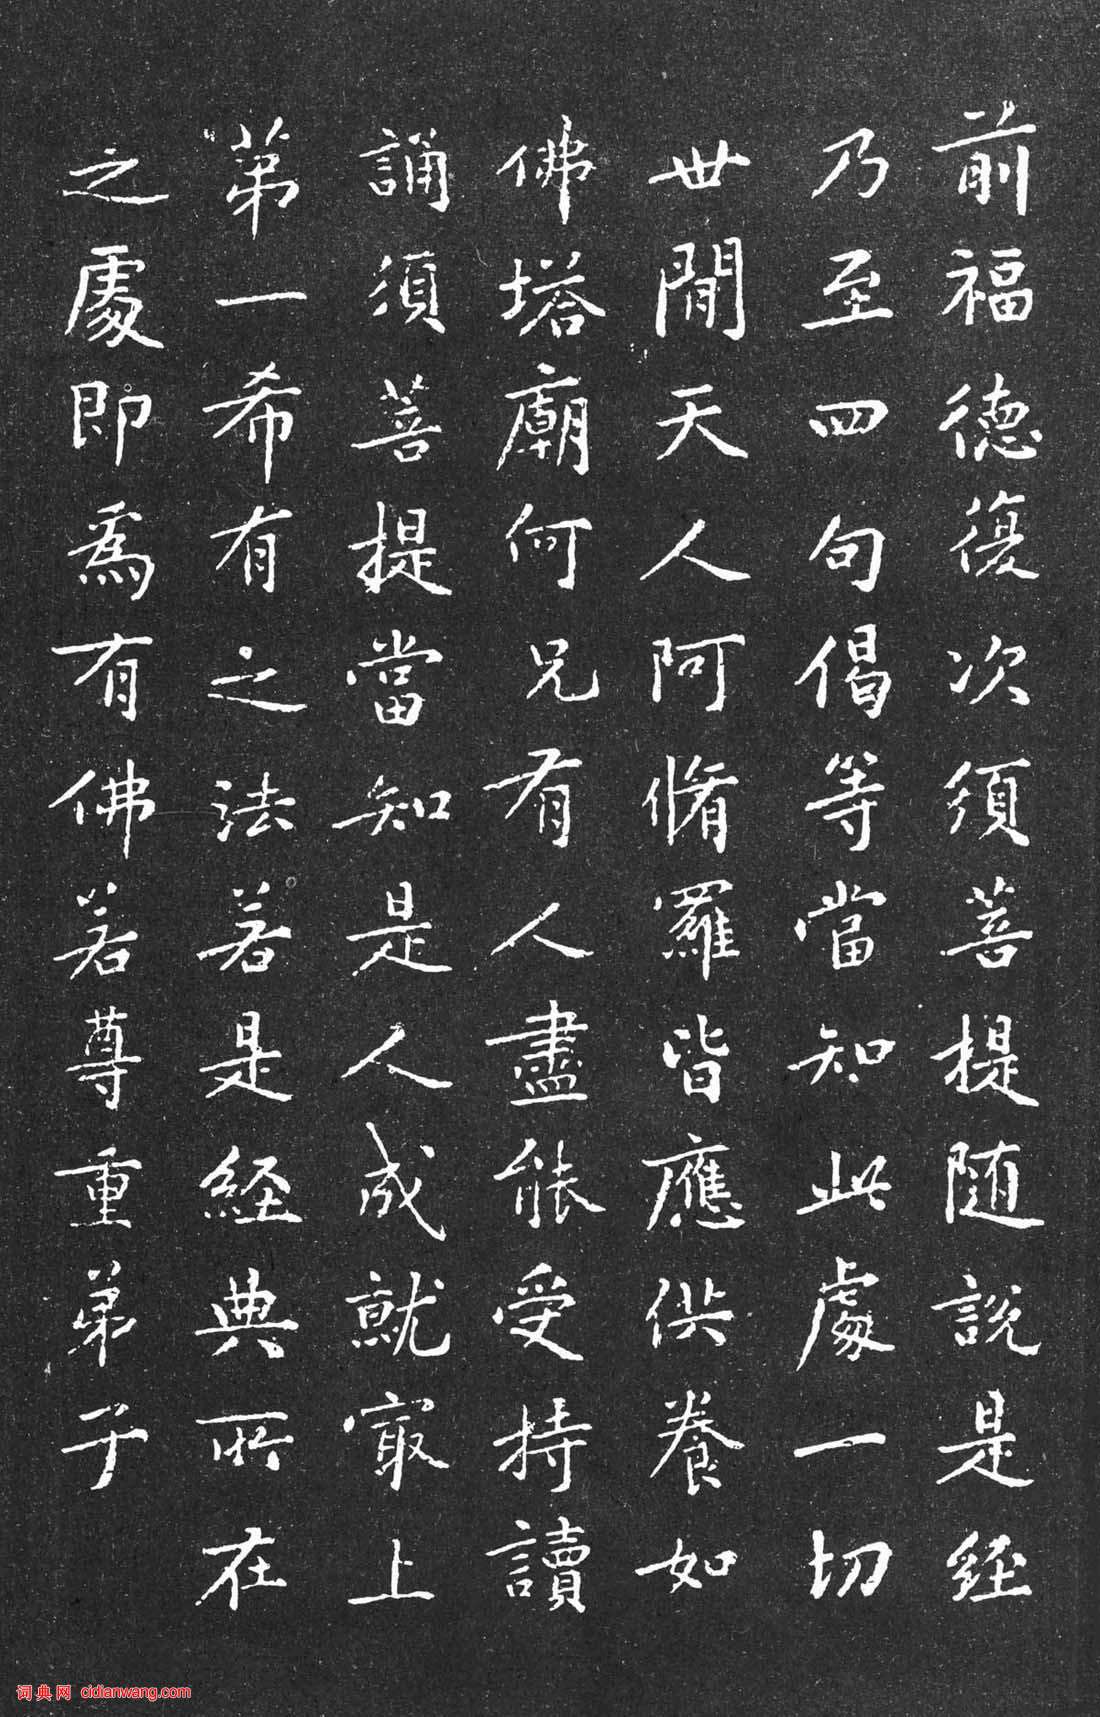 前福德復次須菩提随說是經
乃至四句偈等當知此處一切
世間天人阿脩羅皆應供養如
佛塔廟何況有人盡能受持讀
誦須菩提當知是人成就冣上
第一希有之法若是經典所在
之處即為有佛若尊重弟子
词典网 cidianwang.com